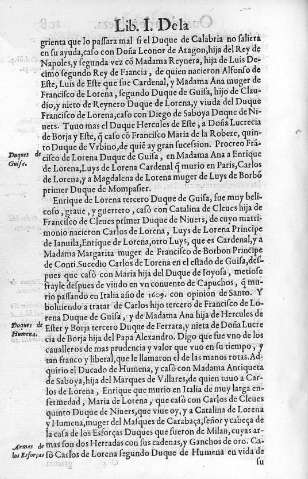 Lib. I. De la
grienta que lo passara mal si el Duque de Calabria no saliera
en su ayuda, caso con Doña Leonor de Aragon, hija del Rey de
Napoles, y segunda vez cō Madama Reynera, hija de Luis De-
cimo segundo Rey de Francia, de quien nacieron Alfonso de
Este, Luis de Este que fue Cardenal, y Madama Ana muger de
Francisco de Lorena, segundo Duque de Guisa, hijo de Clau-
dio, y nieto de Reynero Duque de Lorena, y viuda del Duque
Francisco de Lorena, caso con Diego de Saboya Duque de Ni-
uers. Tuuo mas el Duque Hercules de Este, a Doña Lucrecia
de Borja y Este, q̄ caso cō Francisco Maria de la Robere, quin-
to Duque de Vrbino, de quiē ay gran sucession. Procreo Frā-
Duques de Guisa.
cisco de Lorena Duque de Guisa, en Madama Ana a Enrique
de Lorena, Luys de Lorena Cardenal q̄ murio en Paris, Carlos
de Lorena, y a Magdalena de Lorena muger de Luys de Borbō
primer Duque de Mompasier.
Enrique de Lorena tercero Duque de Guisa, fue muy beli-
coso, graue, y guerrero, caso con Catalina de Cleues hija de
Francisco de Cleues primer Duque de Niuers, de cuyo matri-
monio nacieron Carlos de Lorena, Luys de Lorena Principe
de Ianuila, Enrique de Lorena, otro Luys, que es Cardenal, y a
Madama Margarita muger de Francisco de Borbon Principe
de Conti. Sucedio Carlos de Lorena en el estado de Guisa, des-
pues que casò con Maria hija del Duque de Ioyosa, metiose
frayle despues de viudo en vn conuento de Capuchos, q̄ mu-
rio passando en Italia año de 1609. con opinion de Santo. Y
boluiendo a tratar de Carlos hijo tercero de Francisco de Lo-
rena Duque de Guisa, y de Madama Ana hija de Hercules de
Duques de Humena.
Este y Borja tercero Duque de Ferrara, y nieta de Doña Lucre
cia de Borja hija del Papa Alexandro. Digo que fue vno de los
caualleros de mas prudencia y valor que vuo en su tiempo, y
tan franco y liberal, que le llamaron el de las manos rotas. Ad-
quirio el Ducado de Humena, y casò con Madama Antiqueta
de Saboya, hija del Marques de Villares, de quien tuuo a Car-
los de Lorena, Enrique que murio en Italia de muy larga en-
fermedad, Maria de Lorena, que casò con Carlos de Cleues
quinto Duque de Niuers, que viue oy, y a Catalina de Lorena
y Humena, muger del Marques de Carabaça, señor y cabeça de
la casa de los Esforças Duques que fueron de Milan, cuyas ar-
Armas de los Esforças
mas son dos Herradas con sus cadenas, y Ganchos de oro. Ca-
sò Carlos de Lorena segundo Duque de Humena en vida de
su